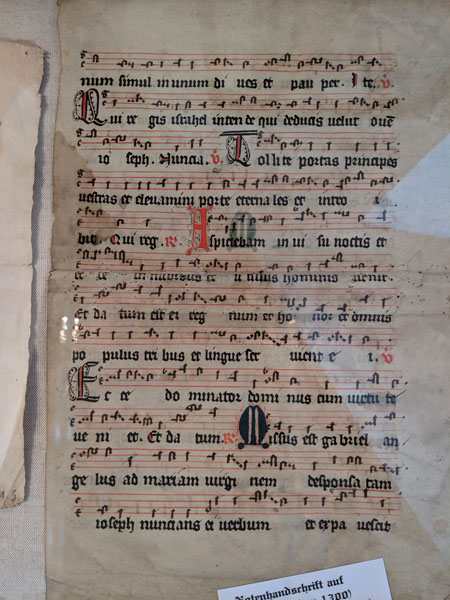 num simul in unum di ves et pau per. Ite. V.
Qui re gis israhel inten de qui deducis velut ovē
io seph. Nuncia. V. Tol lite portas principes
vestras et elevamini porte eterna les et intro i
bit. Qui reg. R. Aspiciebam in vi su noctis et
ec ce in nubibus ce li filius hominis venit.
Et da tum est ei reg num et ho nor et omnis
po pulus tri bus et lingue ser vient e i. V
Ec ce do minator domi nus cum virtu te
ve ni et. Et da tum. R. Missus est gabriel an
ge lus ad mariam virgi nem desponsa tam
ioseph nuncians ei verbum et expa vescit
Notenhandschrift auf
1300)